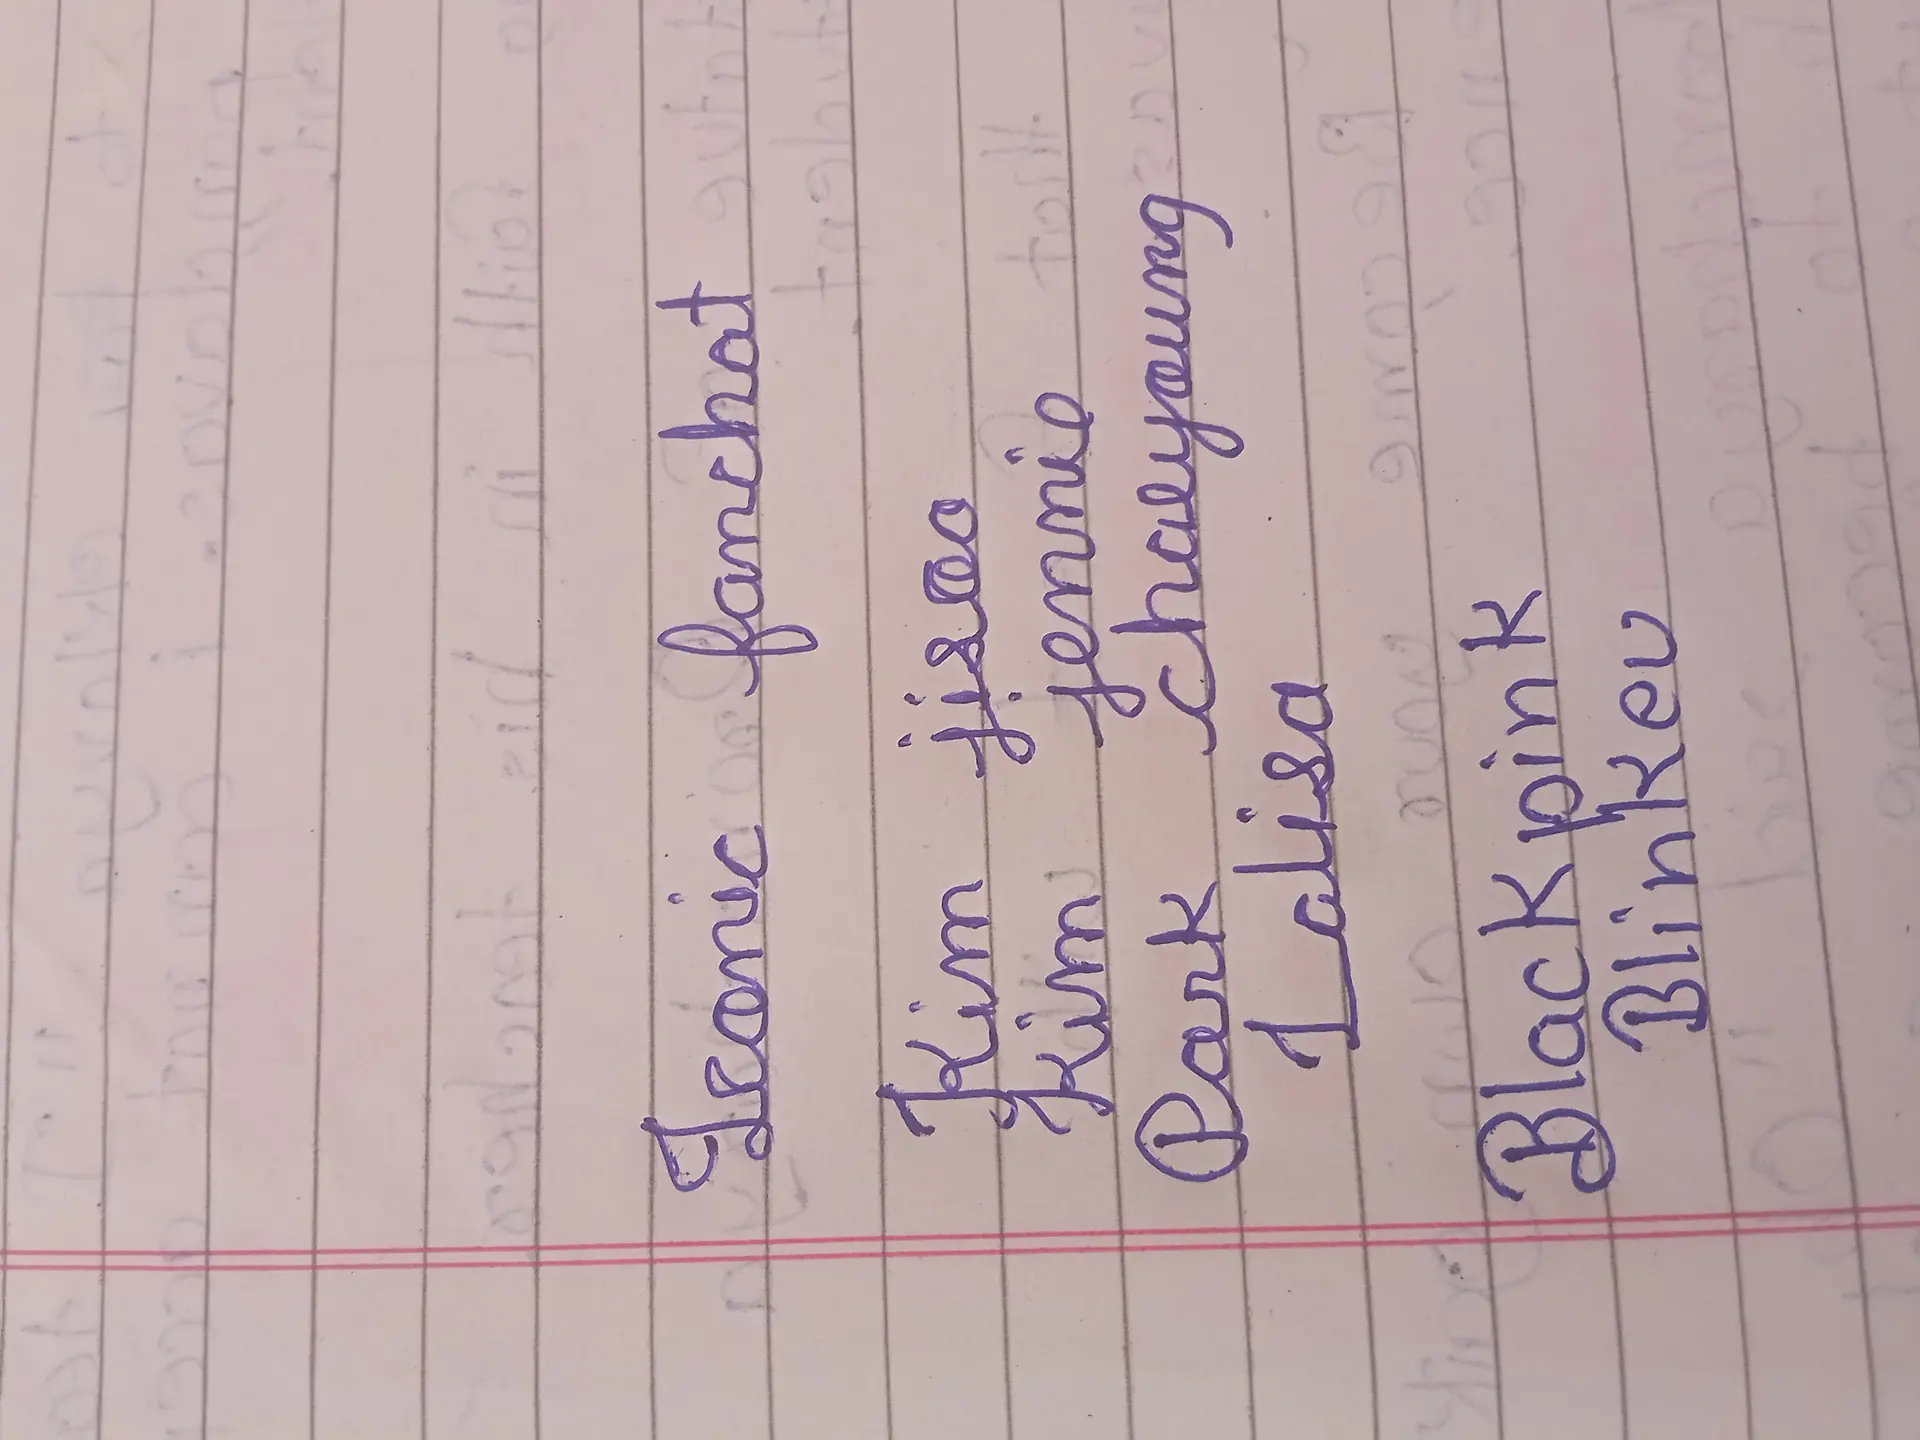 Iconic fanchat
Kim jisoo
Kim jennie
Park chaeyoung
Lalisa
Blackpink
Blinkeu